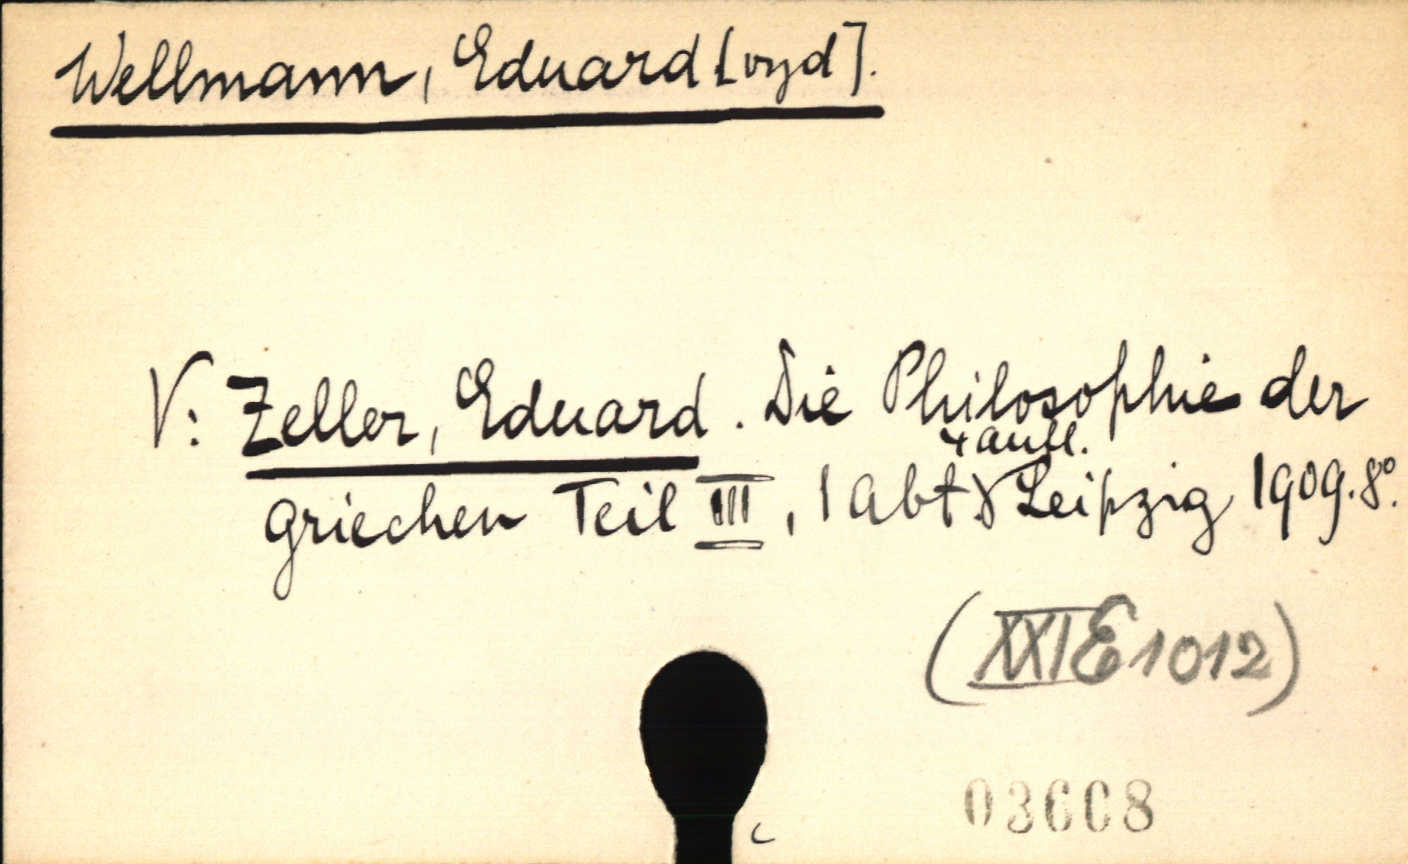 Wellmann, Eduard [vyd].
V: Zeller, Eduard. Die Philosophie der
4 Aufl.
griechen Teil III, 1 Abt. Leipzig 1909. 8°.
(XXI E 1012)
03608
c